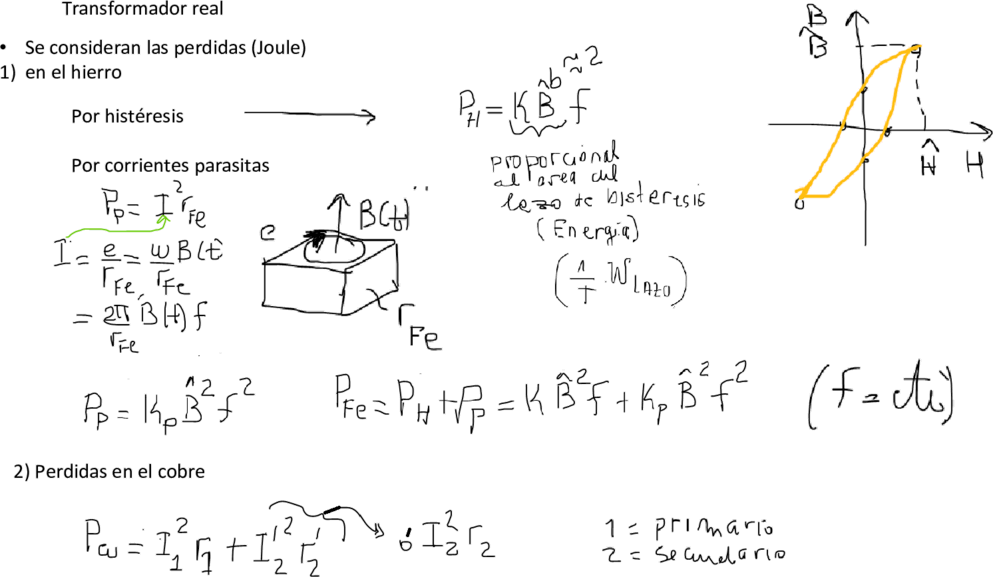 Transformador real
• Se consideran las perdidas (Joule)
1) en el hierro
Por histéresis
P_H = K B̂^b f ≈ 2
proporcional
al area del
lazo de histeresis
(Energia)
(1/T · W_LAZO)
B
B̂
Ĥ H
Por corrientes parasitas
P_P = I² r_Fe
I = e/r_Fe = ω B(t/r_Fe
= 2π/r_Fe B(t) f
e
B(t)
r_Fe
P_P = K_P B̂² f²
P_Fe = P_H + P_P = K B̂² f + K_P B̂² f²
(f = cte)
2) Perdidas en el cobre
P_cu = I₁² r₁ + I₂'² r₂' ó I₂² r₂
1 = primario
2 = secundario